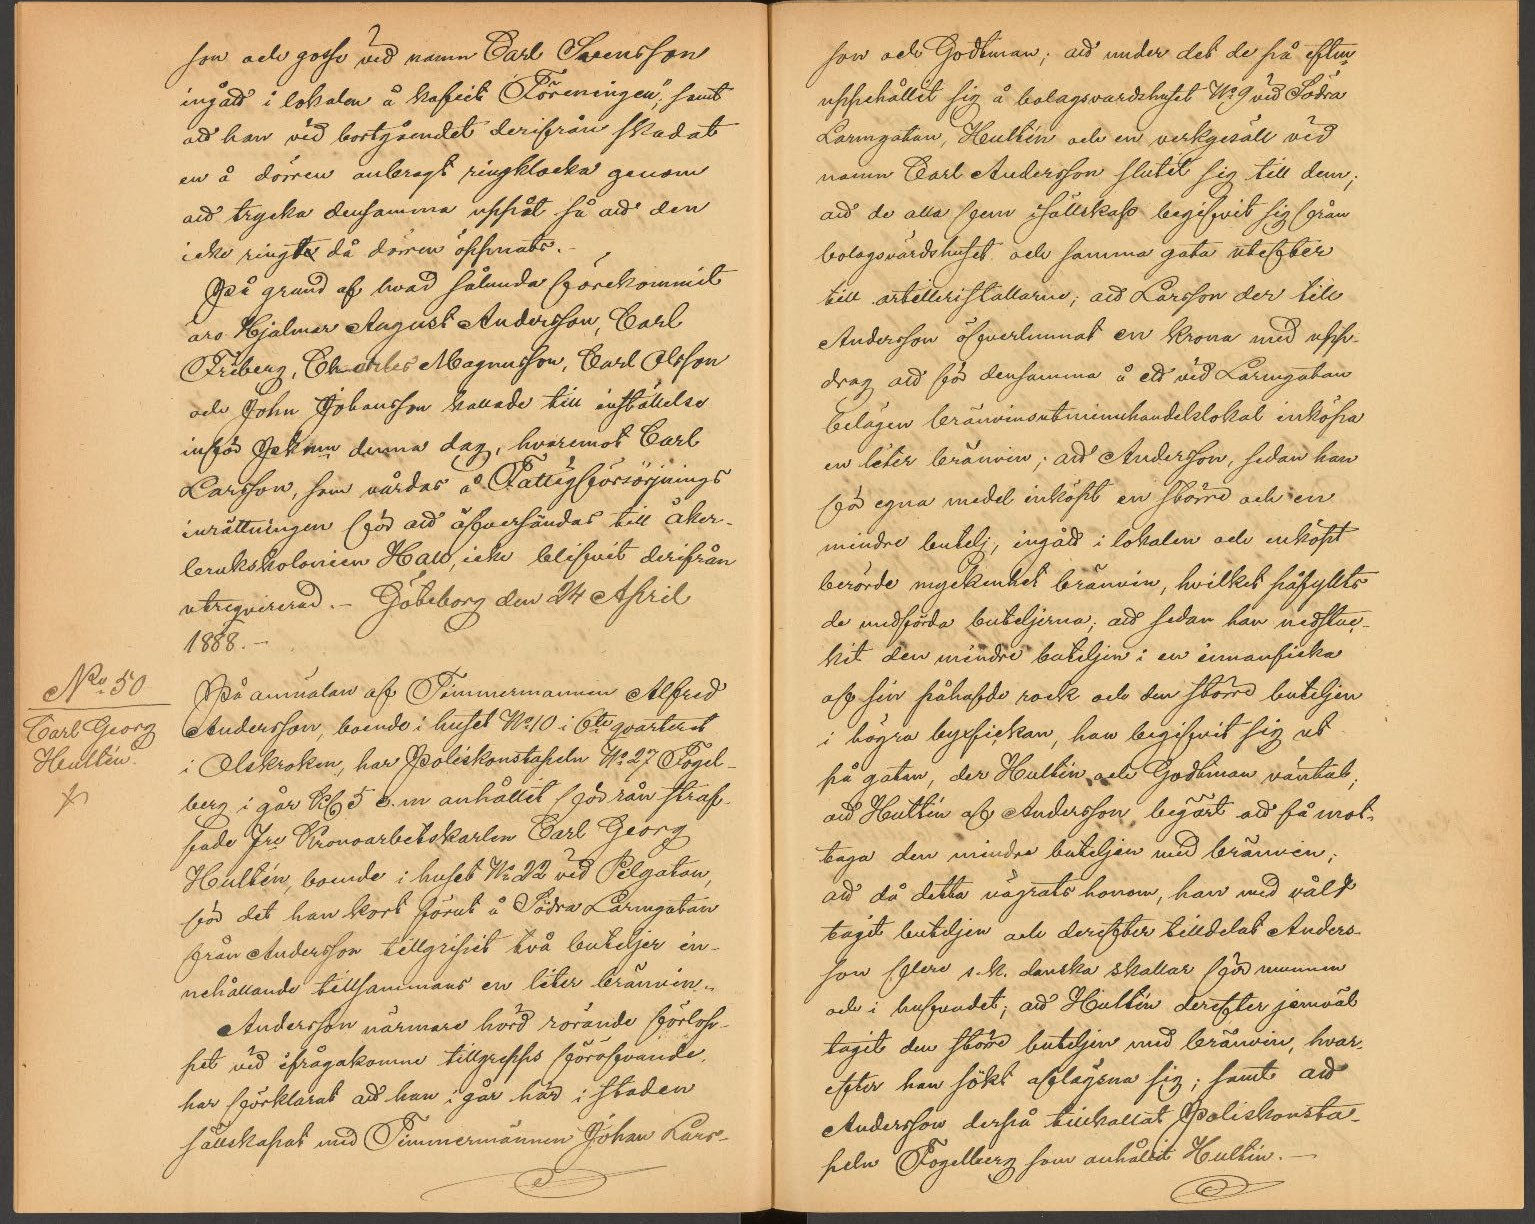 son och gosse vid namn Carl Svensson
ingått i lokalen å kaféet "Föreningen", samt
att han vid bortgåendet derifrån skadat
en å dörren anbragt ringklocka genom
att trycka densamma uppåt så att den
icke ringt då dörren öppnats.-
På grund af hvad sålunda förekommit
äro Hjalmar August Andersson, Carl
Friberg, Charles Magnusson, Carl Olsson
och John Johansson kallade till inställelse
inför denna dag, hvaremot Carl
Larsson, som vårdas å Fattigförsörjnings
inrättningen för att öfversändas till åker-
brukskolonien Hall, icke blifvit derifrån
utreqvirerad.- Göteborg den 24 April
1888.-
No. 50
Carl Georg
Hultin.
På anmälan af Timmermannen Alfred
Andersson, boende i huset No 10 i 6te qvarteret
i Olskroken, har Poliskonstapeln No 27 Fogel-
berg i går Kl 5 e.m anhållit för rån straf-
fade fre Kronoarbetskarlen Carl Georg
Hultin, boende i huset No 22 vid Pilgatan,
för det han kort förut å Södra Larmgatan
från Andersson tillgripit två buteljer in-
nehållande tillsammans en liter bränvin.-
Andersson närmare hörd rörande förlop-
pet vid ifrågakomne tillgrepps föröfvande,
har förklarat att han i går här i staden
sällskapat med Timmermännen Johan Lars-
son och Godtman; att under det de på eftm
uppehållit sig å bolagsvärdshuset No 9 vid Södra
Larmgatan, Hultin och en verkgesäll vid
namn Carl Andersson slutit sig till dem;
att de alla fem i sällskap begifvit sig från
bolagsvärdshuset och samma gata utefter
till artilleristallarne; att Larsson der till
Andersson öfverlemnat en krona med upp-
drag att för densamma å ett vid Larmgatan
belägen bränvinsutminuthandelslokal inköpa
en liter bränvin; att Andersson, sedan han
för egna medel inköpt en större och en
mindre butelj, ingått i lokalen och inköpt
berörde myckenhet bränvin, hvilket påfyllts
de medförda buteljerna; att sedan han nedstuc-
kit den mindre buteljen i en innanficka
af sin påhafde rock och den större buteljen
i högra byxfickan, han begifvit sig ut
på gatan, der Hultin och Godtman väntat;
att Hultin af Andersson begärt att få mot-
taga den mindre buteljen med bränvin;
att då detta vägrats honom, han med våld
tagit buteljen och derefter tilldelat Anders-
son flere s.k. danska skallar för munnen
och i hufvudet; att Hultin derefter jemväl
tagit den större buteljen med bränvin, hvar-
efter han sökt aflägsna sig; samt att
Andersson derpå tillkallat Poliskonsta-
peln Fogelberg som anhållit Hultin.-